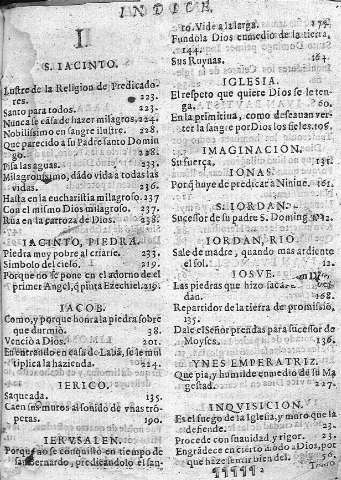 INDICE
I
S. IACINTO.
Lustre de la Religion de Predicado-
res. 223.
Santo para todos. 223.
Nunca se casa de hazer milagros, 224.
Nobilissimo en sangre ilustre. 228.
Que parecido a su Padre santo Domin
go. 228.
Pisa las aguas. 233.
Milagrosissimo, dãdo vida a todas las
vidas. 236.
Hasta en la eucharistia milagroso. 237
Con el mismo Dios milagroso. 237.
Rua en la carroza de Dios. 238.
IACINTO, PIEDRA.
Piedra muy pobre al criarse. 233.
Simbolo del cielo. 219.
Porque no se pone en el adorno de el
primer Angel, q̃ pinta Ezechiel. 219.
IACOB.
Como, y porque honra la piedra sobre
que durmiò. 38.
Venciò a Dios. 201.
En entrando en casa de Labã, se le mul
tiplica la hazienda. 224.
IERICO.
Saqueada. 135.
Caen sus muros al sonido de vnas trõ-
petas. 190.
IERVSALEN.
Porque no se conquistò en tiempo de
san Bernardo, predicandolo el san-
to. Vide a la larga. 179.
Fundola Dios enmedio de la tierra,
144.
Sus Ruynas. 164.
IGLESIA.
El respeto que quiere Dios se le ten-
ga. 60.
En la primitiua, como deseauan ver-
ter la sangre por Dios los fieles. 106.
IMAGINACION.
Su fuerça. 131.
IONAS.
Porq̃ huye de predicar a Niniue. 161.
S. IORDAN.
Sucesor de su padre S. Domingo
IORDAN, RIO.
Sale de madre, quando mas ardiento
el sol. 12.
IOSVE.
Las piedras que hizo sacar
dan. 168.
Repartidor de la tierra de promision,
135.
Dale el Señor prendas para sucesor de
Moyses. 136.
YNES EMPERATRIZ.
Que pia, y humilde enmedio de su Ma
gestad. 227.
INQVISICION.
Es el fuego de la Iglesia, y muro que la
defiende. 23.
Procede con suauidad, y rigor. 23.
Engrãdece en cierto modo a Dios, por
que haze lo mar bien del. 56.
¶¶¶¶¶ 2